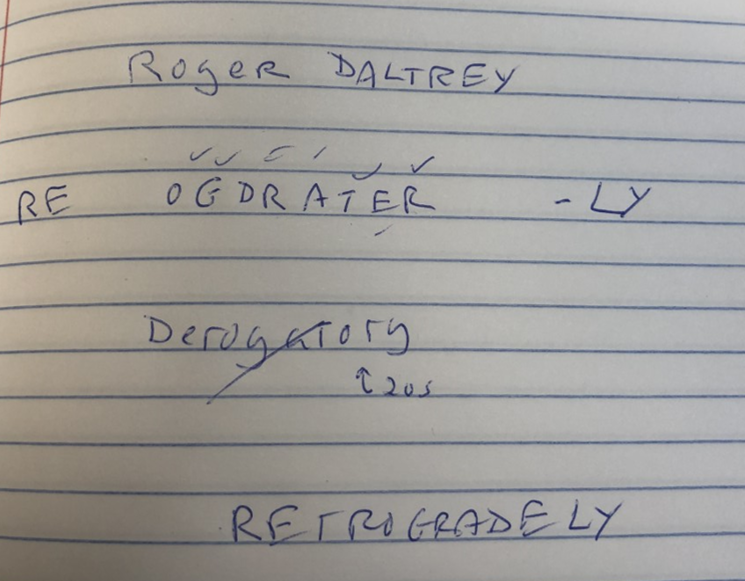 Roger DALTREY
RE OGDRATER -LY
Derogatory
↑ 2 os
RETROGRADELY